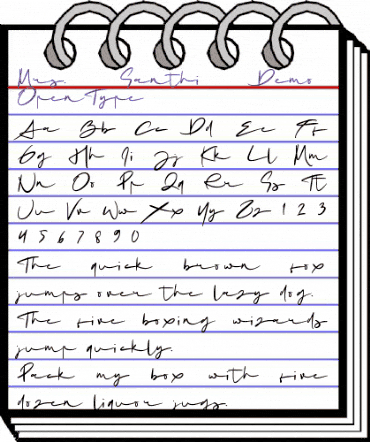 Mrs. Santhi Demo
OpenType
Aa Bb Cc Dd Ee Ff
Gg Hh Ii Jj Kk Ll Mm
Nn Oo Pp Qq Rr Ss Tt
Uu Vv Ww Xx Yy Zz 1 2 3
4 5 6 7 8 9 0
The quick brown fox
jumps over the lazy dog.
The five boxing wizards
jump quickly.
Pack my box with five
dozen liquor jugs.